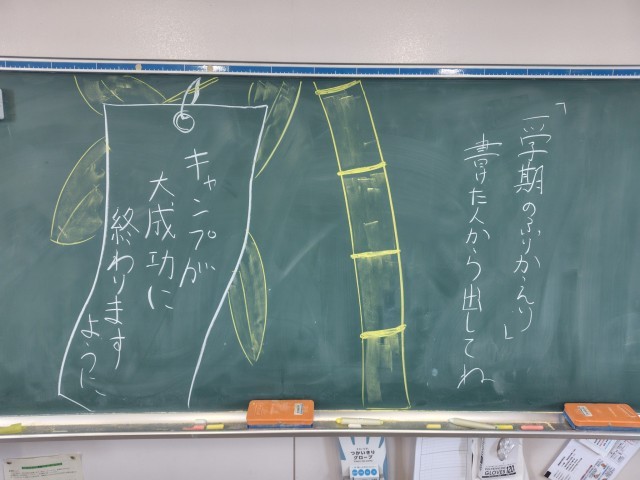 「一学期のふりかえり」
書けた人から出してね
キャンプが
大成功に
終わります
ように
つかいきり
グローブ
GLOVE